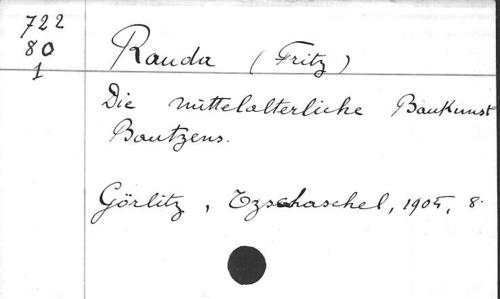 722
80
1
Rauda (Fritz)
Die mittelalterliche Baukunst
Bautzens.
Görlitz, Tzschaschel, 1905, 8.